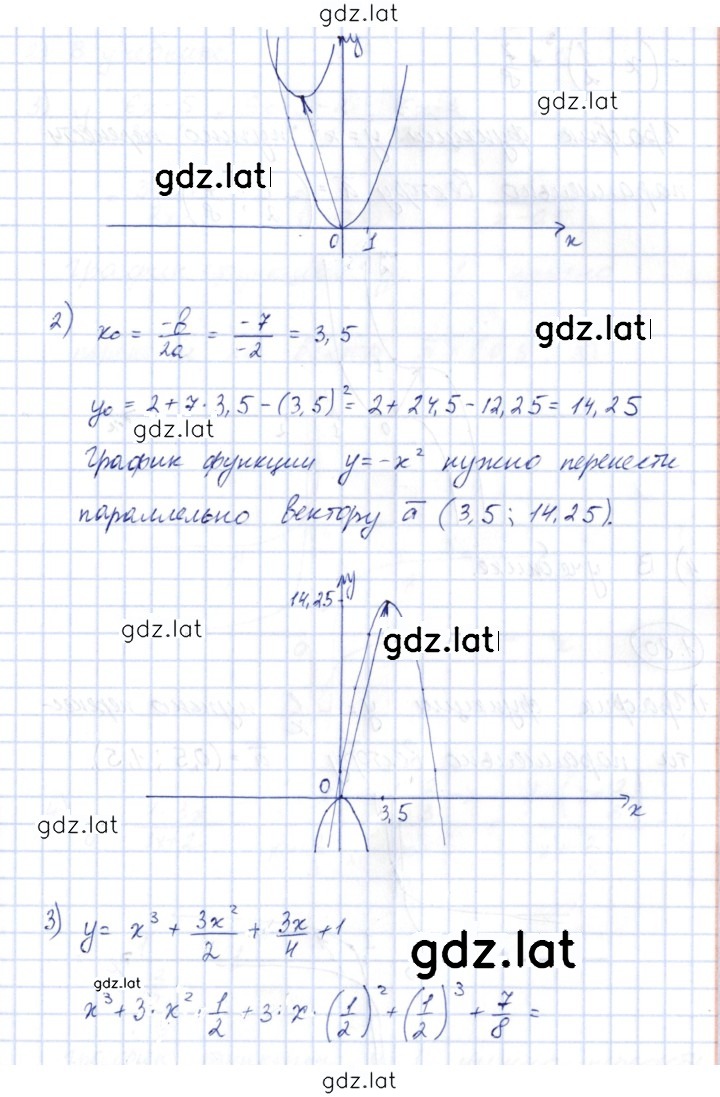 gdz.lat
y
gdz.lat
gdz.lat
0 1 x
2) x₀ = -b/2a = -7/-2 = 3,5
gdz.lat
y₀ = 2 + 7 · 3,5 - (3,5)² = 2 + 24,5 - 12,25 = 14,25
gdz.lat
График функции y = -x² нужно перенести
параллельно вектору a̅ (3,5; 14,25).
y
14,25
gdz.lat
gdz.lat
0
3,5 x
gdz.lat
3) y = x³ + 3x²/2 + 3x/4 + 1
gdz.lat
gdz.lat
x³ + 3 · x² · 1/2 + 3 · x · (1/2)² + (1/2)³ + 7/8 =
gdz.lat